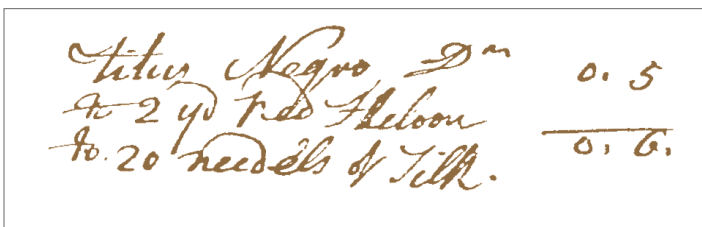 Titus Negro Dr
to 2 yd Red 0. 5
to 20 needels of Silk. 0. 6.